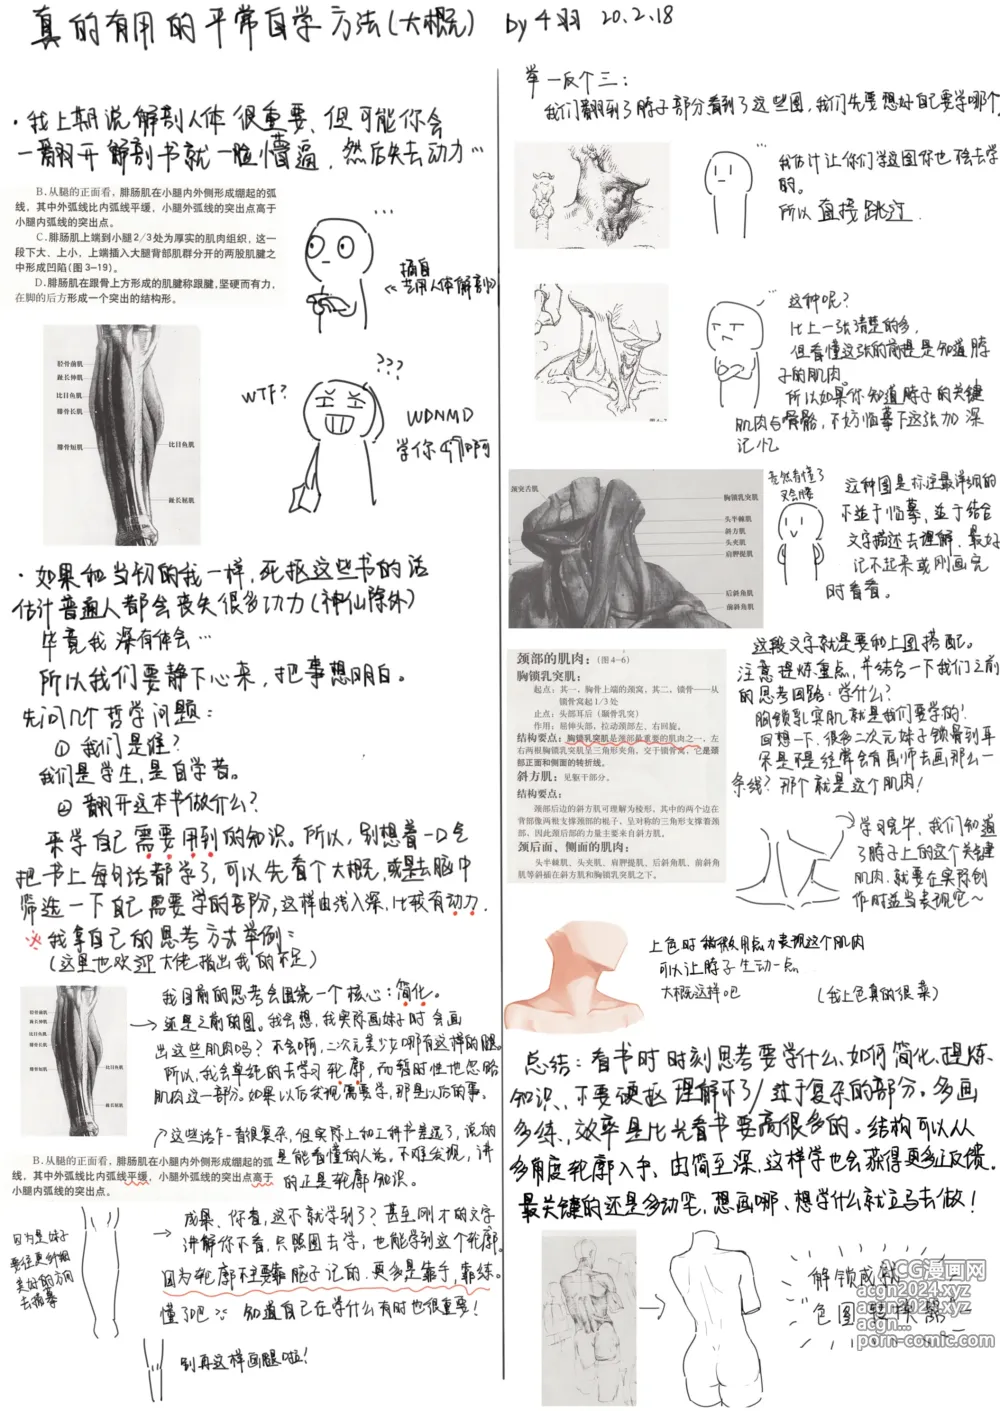 真的有用的平常自学方法(大概) by 千羽 20.2.18
·我上期说解剖人体很重要、但可能你会
一翻开解剖书就一脸懵逼,然后失去动力…
B.从腿的正面看,腓肠肌在小腿内外侧形成绷起的弧
线,其中外弧线比内弧线平缓,小腿外弧线的突出点高于
小腿内弧线的突出点。
C.腓肠肌上端到小腿2/3处为厚实的肌肉组织,这一
段下大、上小,上端插入大腿背部肌群分开的两股肌腱之
中形成凹陷(图3-19)。
D.腓肠肌在跟骨上方形成的肌腱称跟腱,坚硬而有力,
在脚的后方形成一个突出的结构形。
...
摘自
《艺用人体解剖》
胫骨前肌
趾长伸肌
比目鱼肌
腓骨长肌
腓骨短肌
比目鱼肌
趾长屈肌
WTF?
???
WDNMD
学你
·如果和当初的我一样,死抠这些书的话
估计普通人都会丧失很多动力(神仙除外)
毕竟我深有体会…
所以我们要静下心来,把事想明白。
先问几个哲学问题:
① 我们是谁?
我们是学生,是自学者。
② 翻开这本书做什么?
来学自己需要用到的知识。所以,别想着一口气
把书上每句话都学了,可以先看个大概,或是去脑中
筛选一下自己需要学的部分,这样由浅入深,比较有动力.
※我拿自己的思考方式举例:
(这里也欢迎大佬指出我的不足)
胫骨前肌
趾长伸肌
比目鱼肌
腓骨长肌
腓骨短肌
比目鱼肌
趾长屈肌
我目前的思考会围绕一个核心:简化。
还是之前的图。我会想,我实际画妹子时会画
出这些肌肉吗?不会啊,二次元美少女哪有这样的腿。
所以,我会单纯的去学习轮廓,而暂时性也忽略
肌肉这一部分。如果以后发现需要学,那是以后的事。
这些话乍一看很复杂,但实际上和工科书差远了,说的
是能看懂的人话。不难发现,讲
的正是轮廓知识。
B.从腿的正面看,腓肠肌在小腿内外侧形成绷起的弧
线,其中外弧线比内弧线平缓,小腿外弧线的突出点高于
小腿内弧线的突出点。
因为是妹子
要往更纤细
美好的方向
去描摹
成果、你看,这不就学到了?甚至刚才的文字
讲解你不看,只照图去学,也能学到这个轮廓。
因为轮廓不主要靠脑子记的,更多是靠手,靠练。
懂了吧 知道自己在学什么有时也很重要!
别再这样画腿啦!
举一反个三:
我们翻到了脖子部分,看到了这些图,我们先要想好自己要学哪个,
我估计让你们学这图你也唔去学
的。
所以直接跳过.
这种呢?
比上一张清楚的多,
但看懂这张的前提是知道脖
子的肌肉。
所以如果你知道脖子的关键
肌肉与骨骼,不妨临摹下这张加深
记忆
竟然看懂了
颈突舌肌
胸锁乳突肌
头半棘肌
斜方肌
头夹肌
肩胛提肌
后斜角肌
前斜角肌
这种图是标注最详细的
不益于临摹,益于结合
文字描述去理解,最好
记不起来或刚画完
时看看。
颈部的肌肉:(图4-6)
胸锁乳突肌:
起点:其一,胸骨上端的颈窝,其二,锁骨——从
锁骨窝起1/3处
止点:头部耳后(颞骨乳突)
作用:屈伸头部,拉动颈部左、右回旋。
结构要点:胸锁乳突肌是颈部最重要的肌肉之一,左
右两根胸锁乳突肌呈三角形夹角,交于锁骨窝,它是颈
部正面和侧面的转折线。
斜方肌:见躯干部分。
结构要点:
颈部后边的斜方肌可理解为棱形,其中的两个边在
背部像两根支撑颈部的棍子,呈对称的三角形支撑着颈
部,因此颈后部的力量主要来自斜方肌。
颈后面、侧面的肌肉:
头半棘肌、头夹肌、肩胛提肌、后斜角肌、前斜角
肌等斜插在斜方肌和胸锁乳突肌之下。
这段文字就是要和上图搭配。
注意提炼重点,并结合一下我们之前
的思考回路:学什么?
胸锁乳突肌就是我们要学的!
回想一下,很多二次元妹子锁骨到耳
朵是不是经常会有画师去画那么一
条线?那个就是这个肌肉!
学习完毕,我们知道
了脖子上的这个关键
肌肉,就要在实际创
作时适当表现吧~
上色时稍微用点力表现这个肌肉
可以让脖子生动一点
大概这样吧
(我上色真的很菜)
总结:看书时时刻思考要学什么、如何简化、提炼
知识、不要硬抠理解不了/过于复杂的部分。多画
多练,效率是比光看书要高很多的。结构可以从
多角度轮廓入手,由简至深,这样学也会获得更多正反馈。
最关键的还是多动笔,想画哪、想学什么就立马去做!
解锁成就
色图转换器~
ACG漫画网
acgn2024.xyz
acgn2025.xyz
acgn...
porn-comic.com